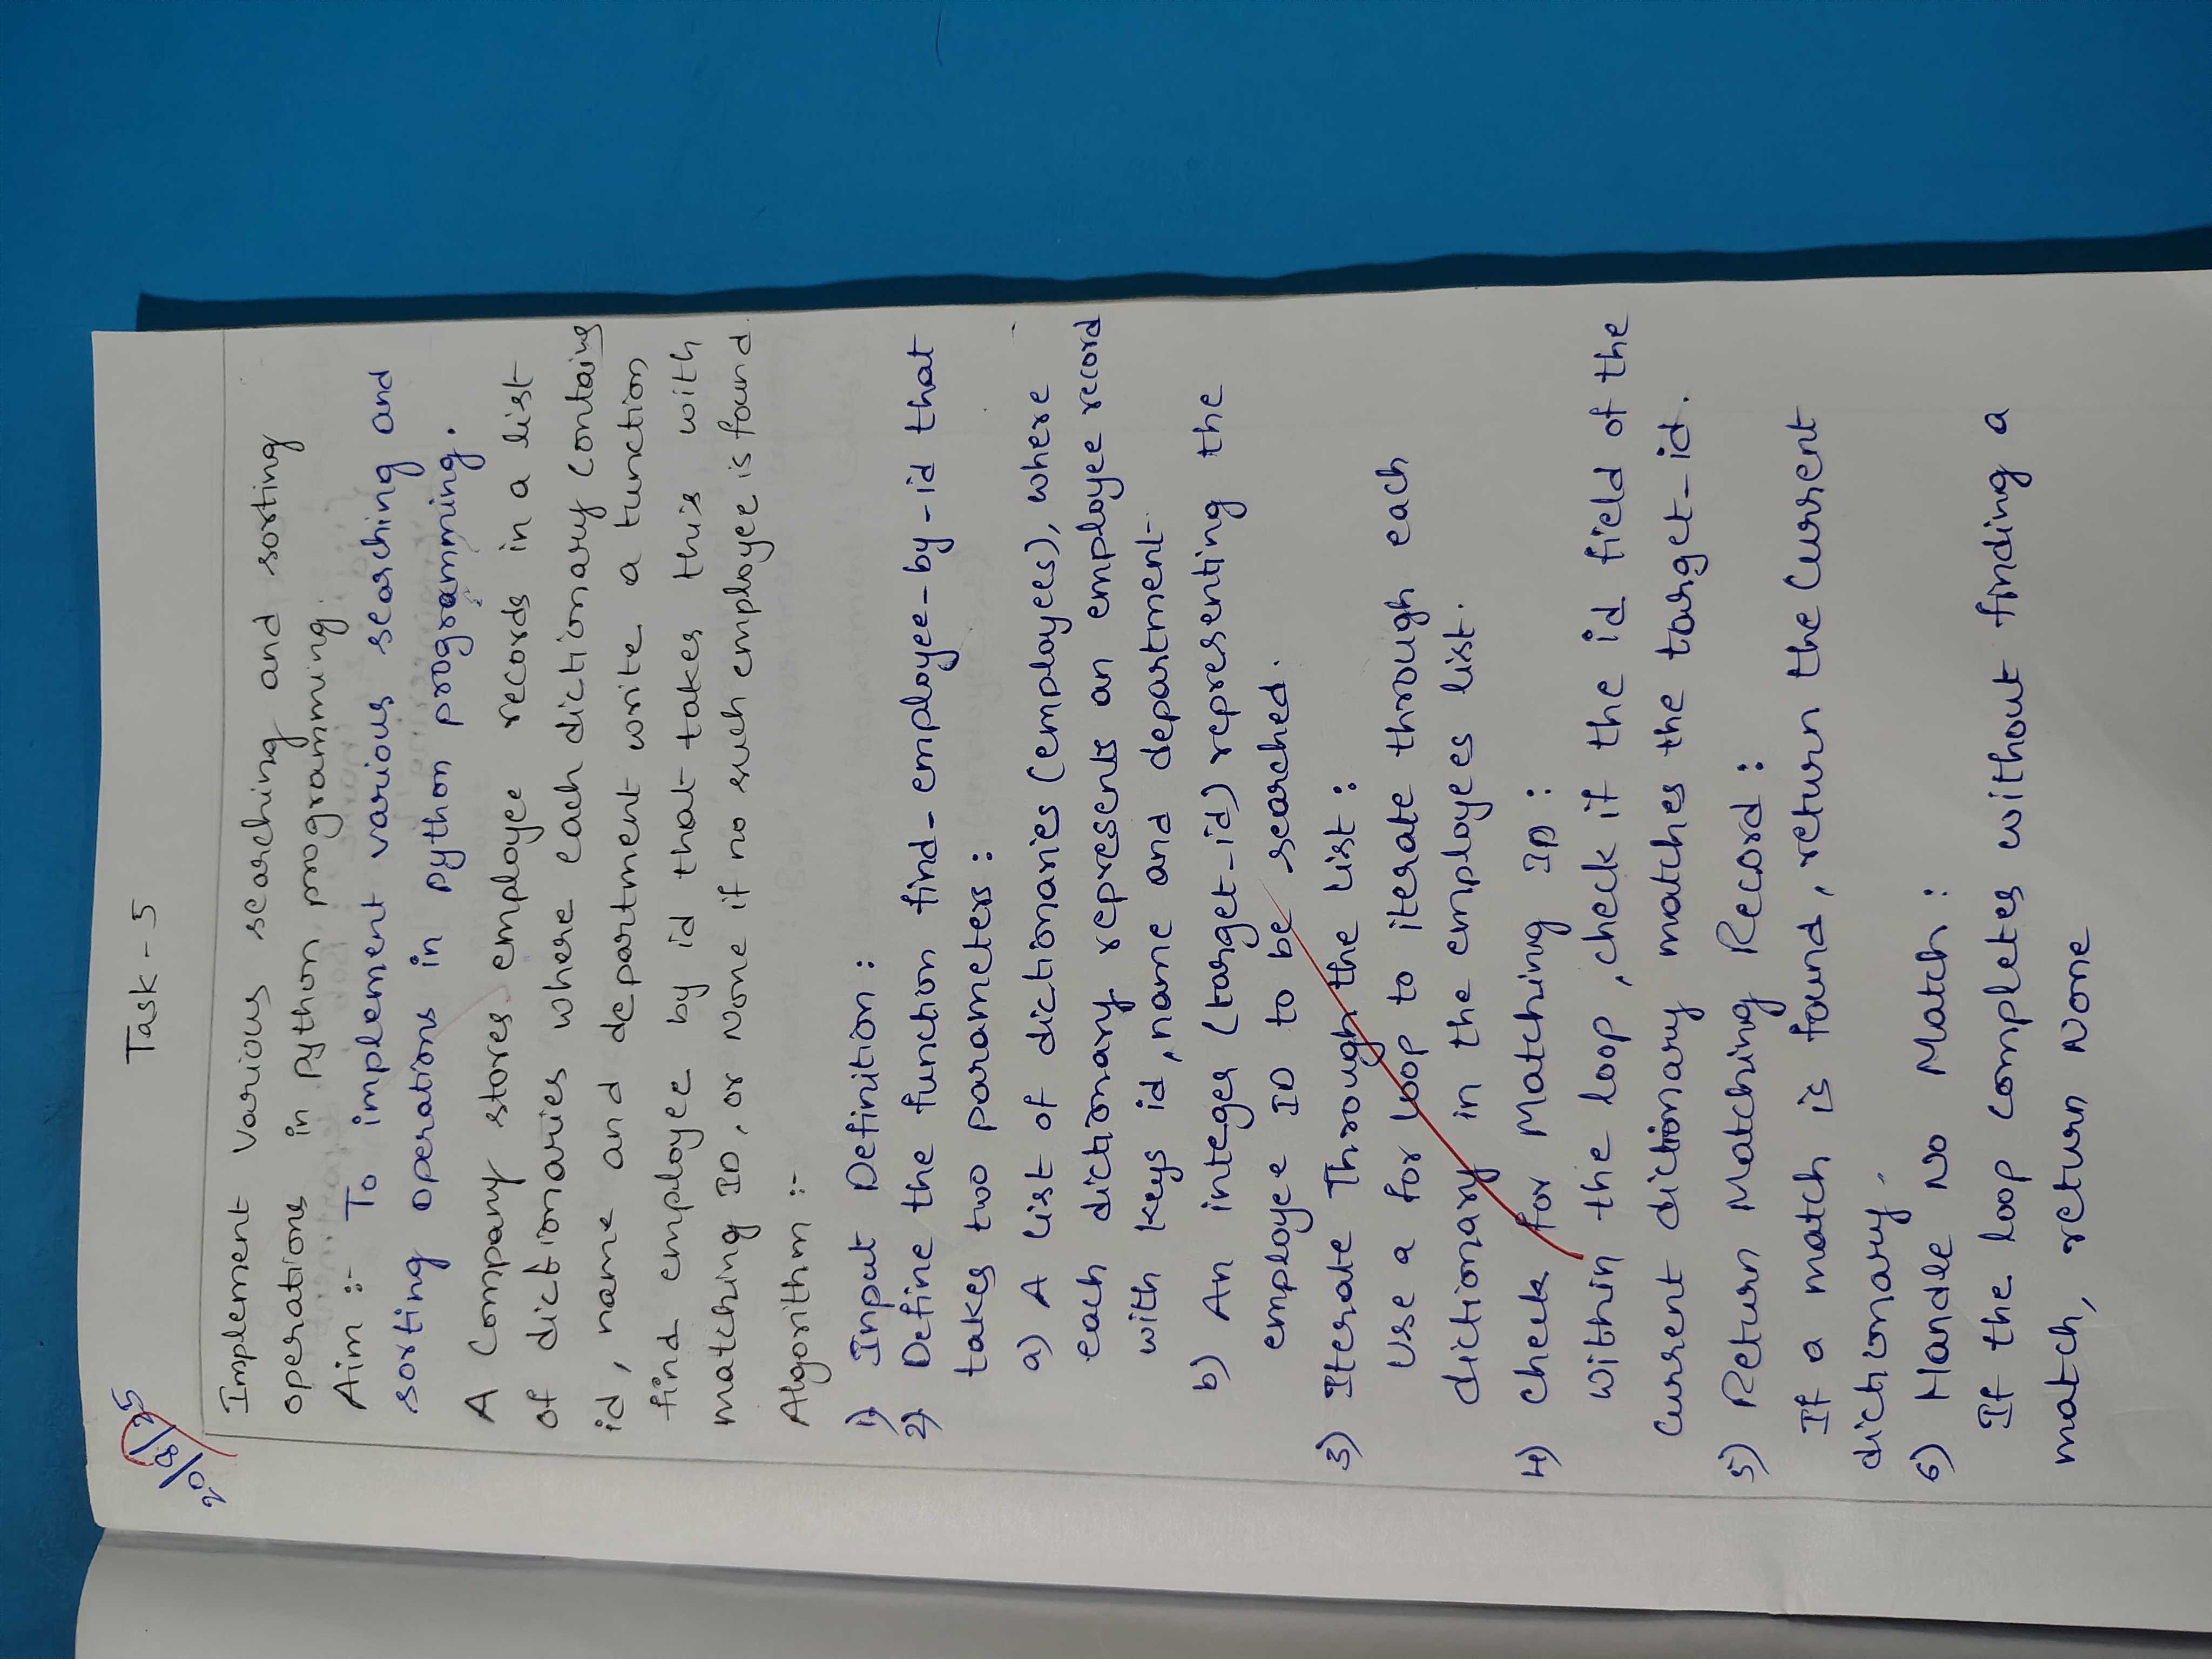 20/8/25
Task - 5
Implement various searching and sorting
operations in python programming.
Aim :- To implement various searching and
sorting operations in python programming.
A Company stores employee records in a list
of dictionaries where each dictionary contains
id, name and department write a function
find employee by id that takes this with
matching ID, or None if no such employee is found.
Algorithm :-
1) Input Definition :
2) Define the function find-employee-by-id that
takes two parameters :
a) A list of dictionaries (employees), where
each dictionary represents an employee record
with keys id, name and department
b) An integer (target-id) representing the
employee ID to be searched.
3) Iterate Through the list :
Use a for loop to iterate through each
dictionary in the employees list.
4) Check for Matching ID :
Within the loop, check if the id field of the
current dictionary matches the target-id.
5) Return Matching Record :
If a match is found, return the current
dictionary.
6) Handle No Match :
If the loop completes without finding a
match, return None